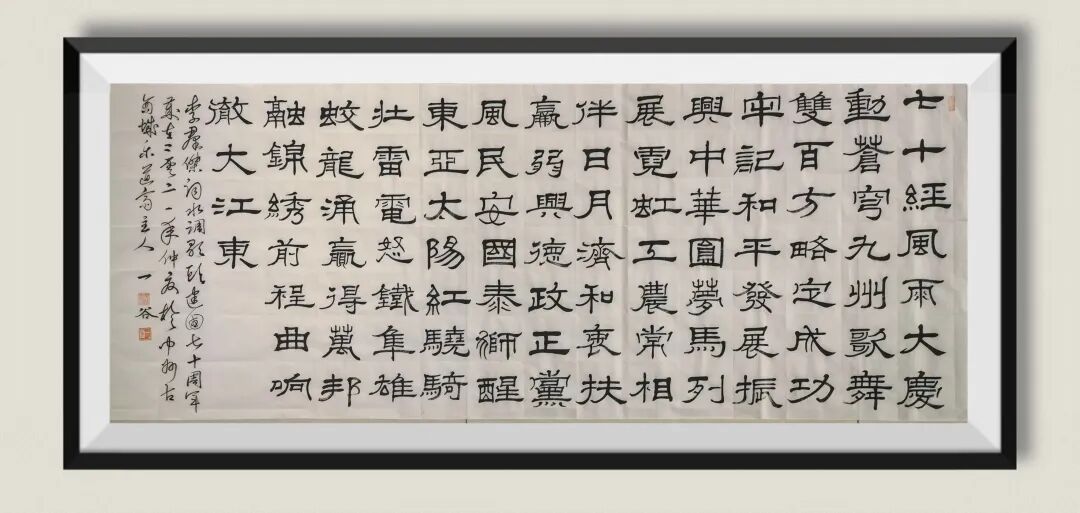 七十經風雨大慶
動蒼穹九州歌舞
雙百方略定成功
牢記和平發展振
興中華圓夢馬列
展霓虹工農常相
伴日月濟和衷扶
羸弱興德政正黨
風民安國泰獅醒
東亞太陽紅驍騎
壯雷電怒鐵隼雄
蛟龍涌贏得萬邦
融錦綉前程曲响
徹大江東
李群傑詞水調歌頭建國七十周年
歲在二零二一年仲夏於古
城樂道齋主人一谷